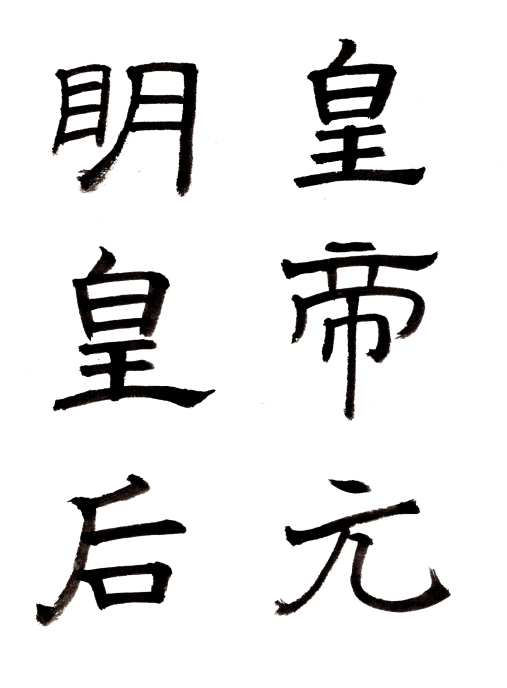 皇帝元
明皇后